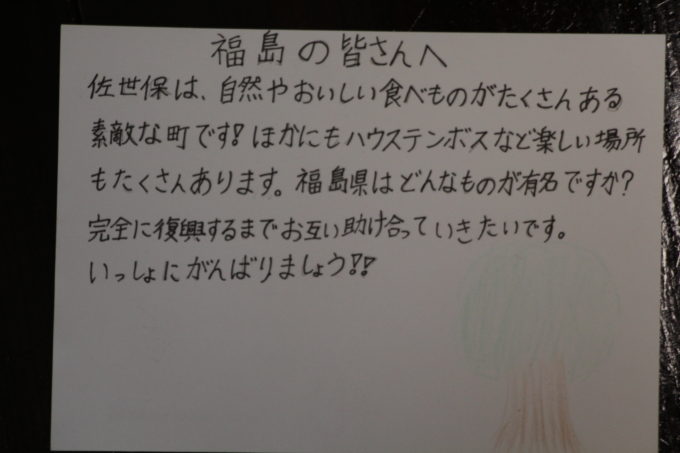 福島の皆さんへ
佐世保は、自然やおいしい食べものがたくさんある
素敵な町です!ほかにもハウステンボスなど楽しい場所
もたくさんあります。福島県はどんなものが有名ですか?
完全に復興するまでお互い助け合っていきたいです。
いっしょにがんばりましょう!!